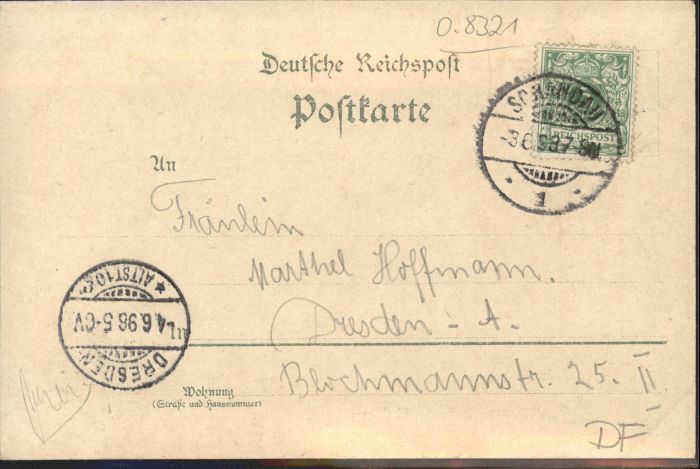 O.8321
Deutsche Reichspost
Postkarte
REICHSPOST
SCHANDAU
3.6.98.7-8N
1
An
Fräulein
Marthel Hoffmann.
Dresden-A.
In
Blochmannstr. 25. II
Wohnung
(Straße und Hausnummer)
DRESDEN
ALTST.10
4.6.98.5-6V
DF